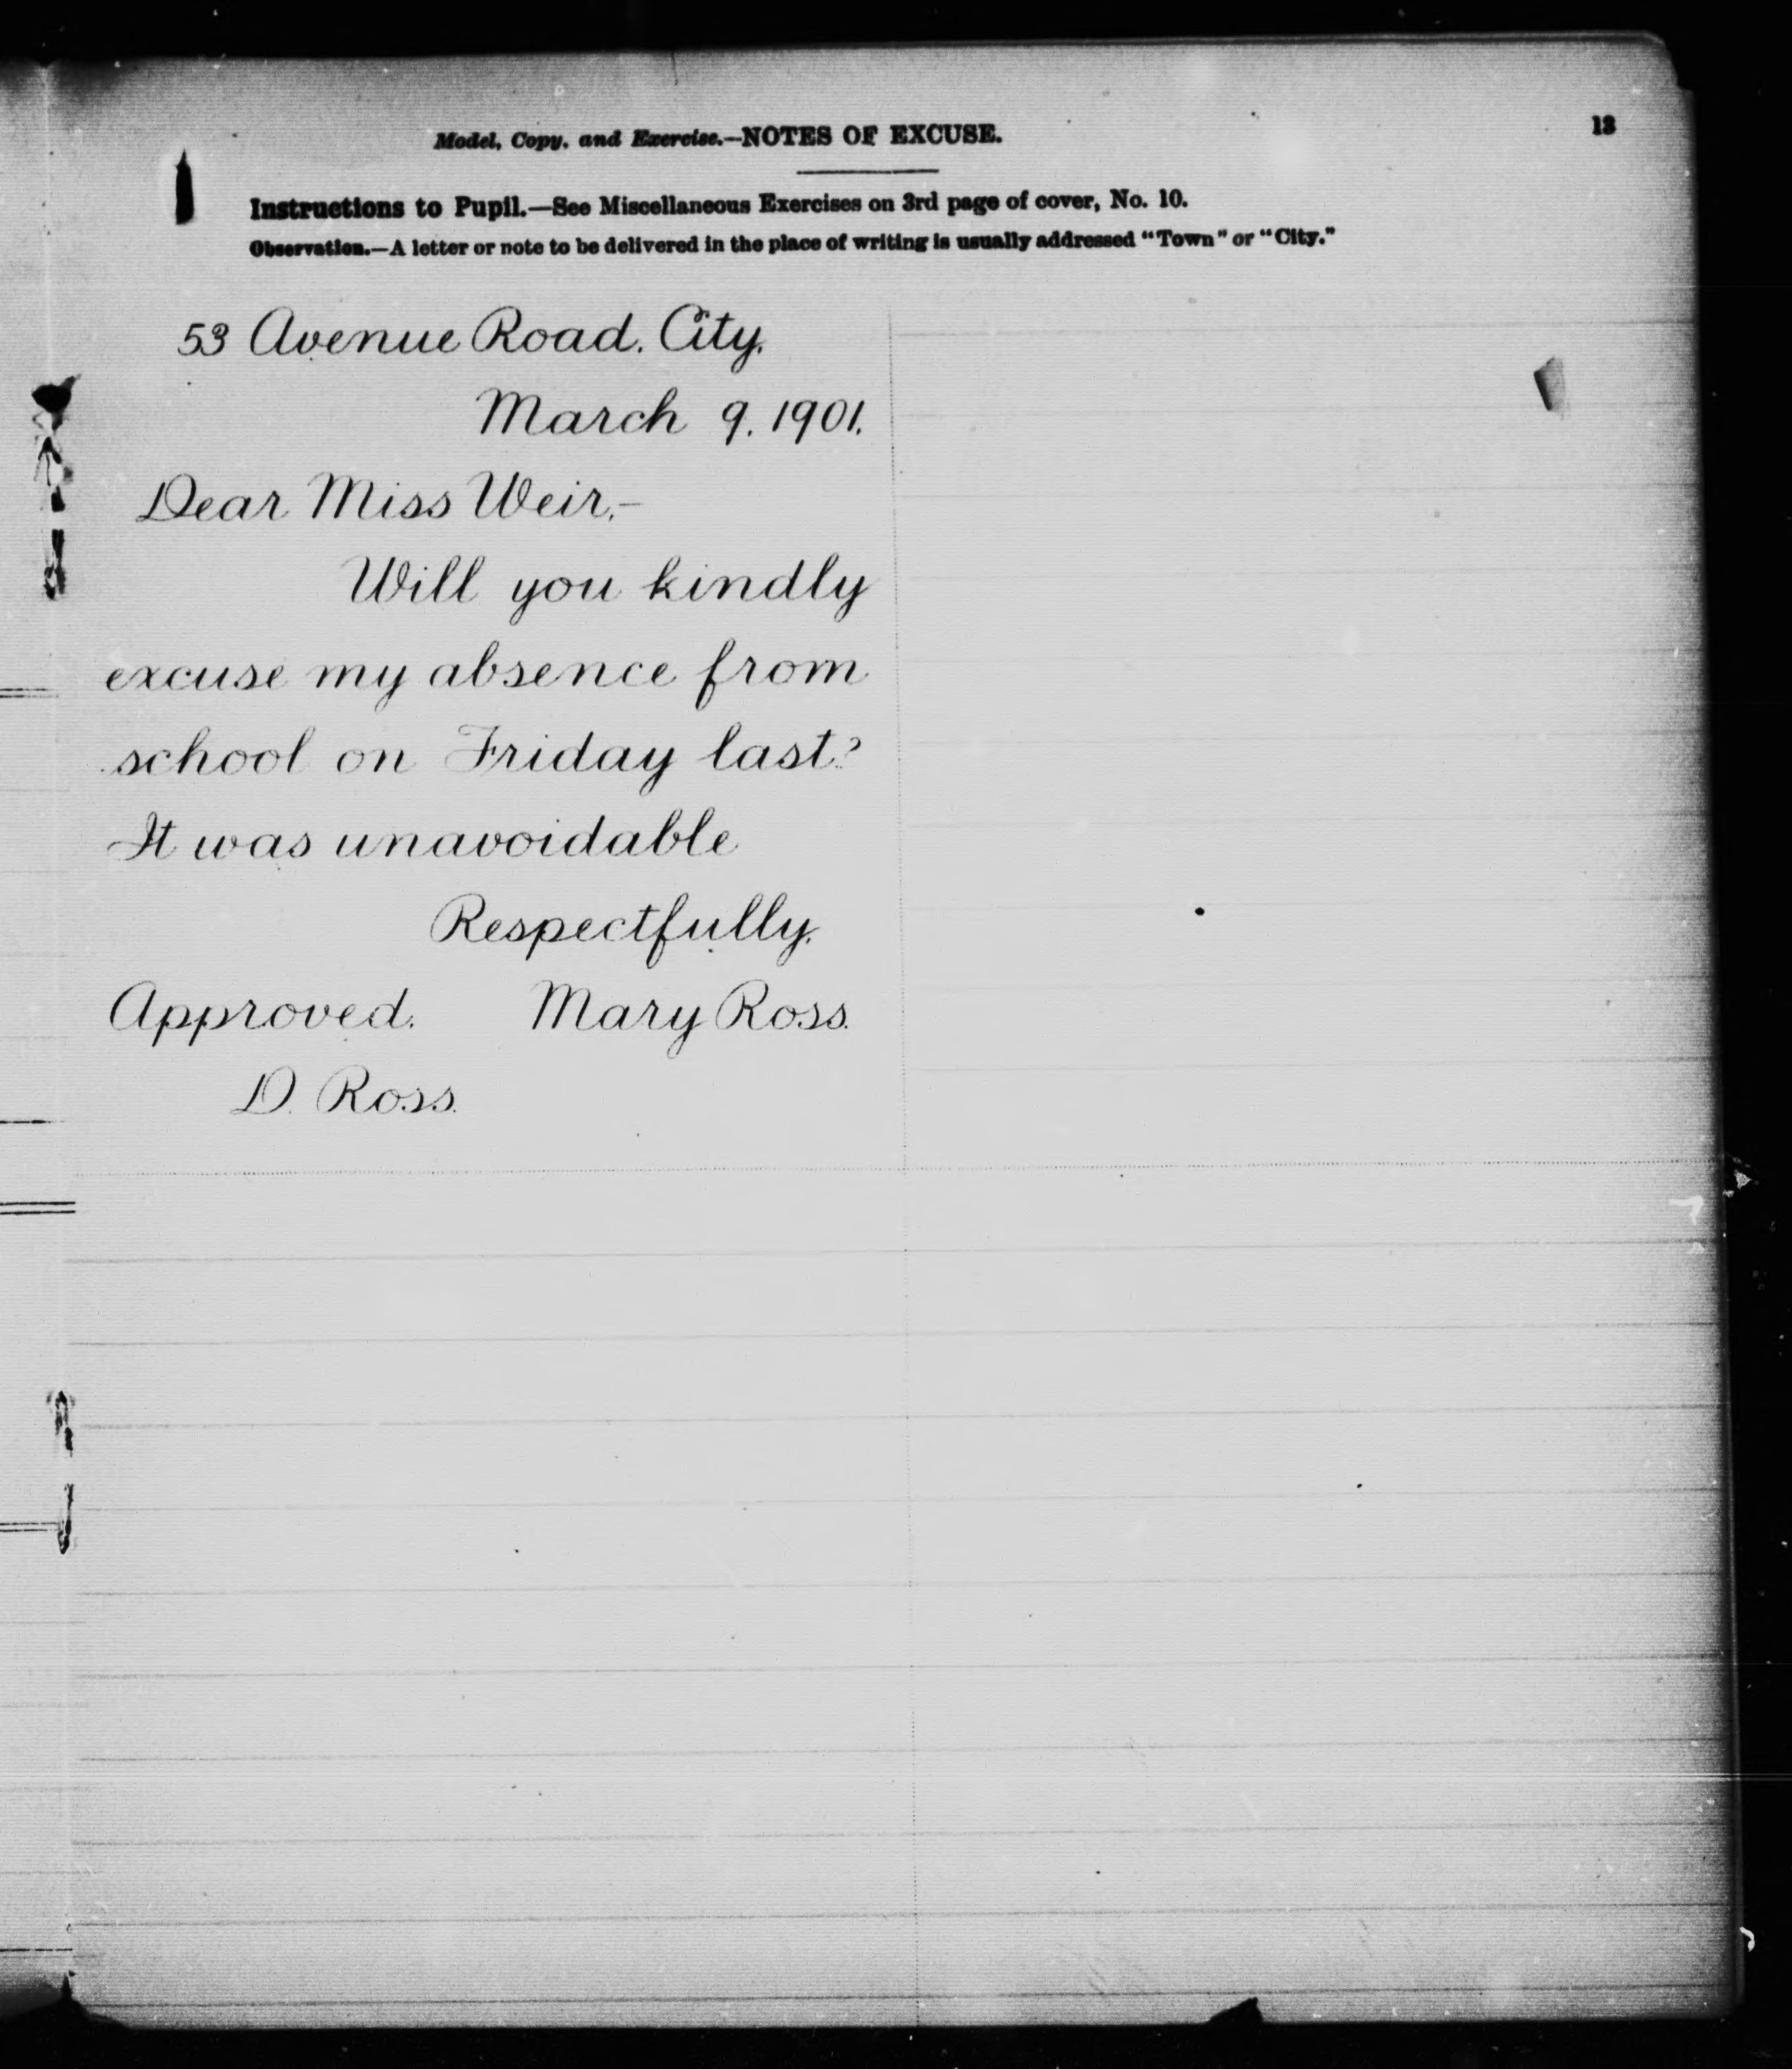 Model, Copy, and Exercise.—NOTES OF EXCUSE.
13
Instructions to Pupil.—See Miscellaneous Exercises on 3rd page of cover, No. 10.
Observation.—A letter or note to be delivered in the place of writing is usually addressed "Town" or "City."
53 Avenue Road, City,
March 9, 1901.
Dear Miss Weir,—
Will you kindly
excuse my absence from
school on Friday last?
It was unavoidable
Respectfully,
Approved. Mary Ross.
D. Ross.